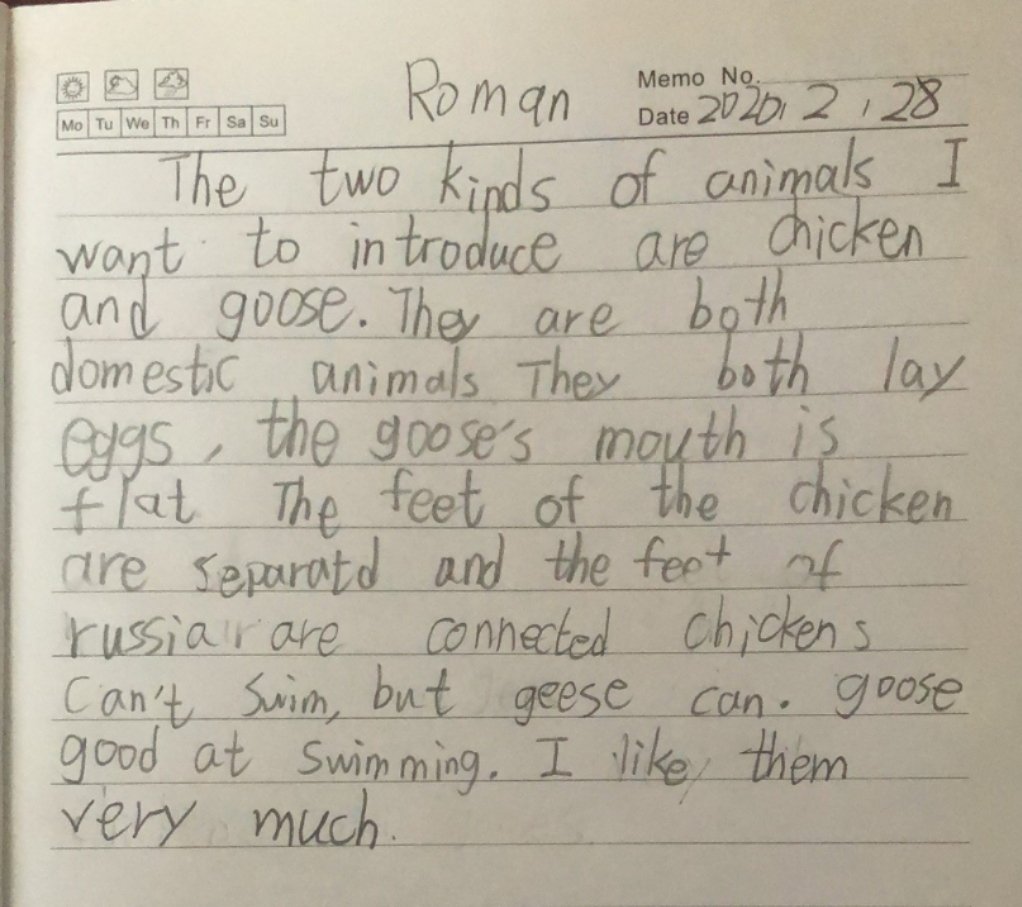 Roman
Memo No.
Mo Tu We Th Fr Sa Su
Date 2020, 2, 28
The two kinds of animals I
want to introduce are chicken
and goose. They are both
domestic animals They both lay
eggs, the goose's mouth is
flat The feet of the chicken
are separatd and the feet of
russia are connected chickens
Can't swim, but geese can. goose
good at swimming. I like them
very much.